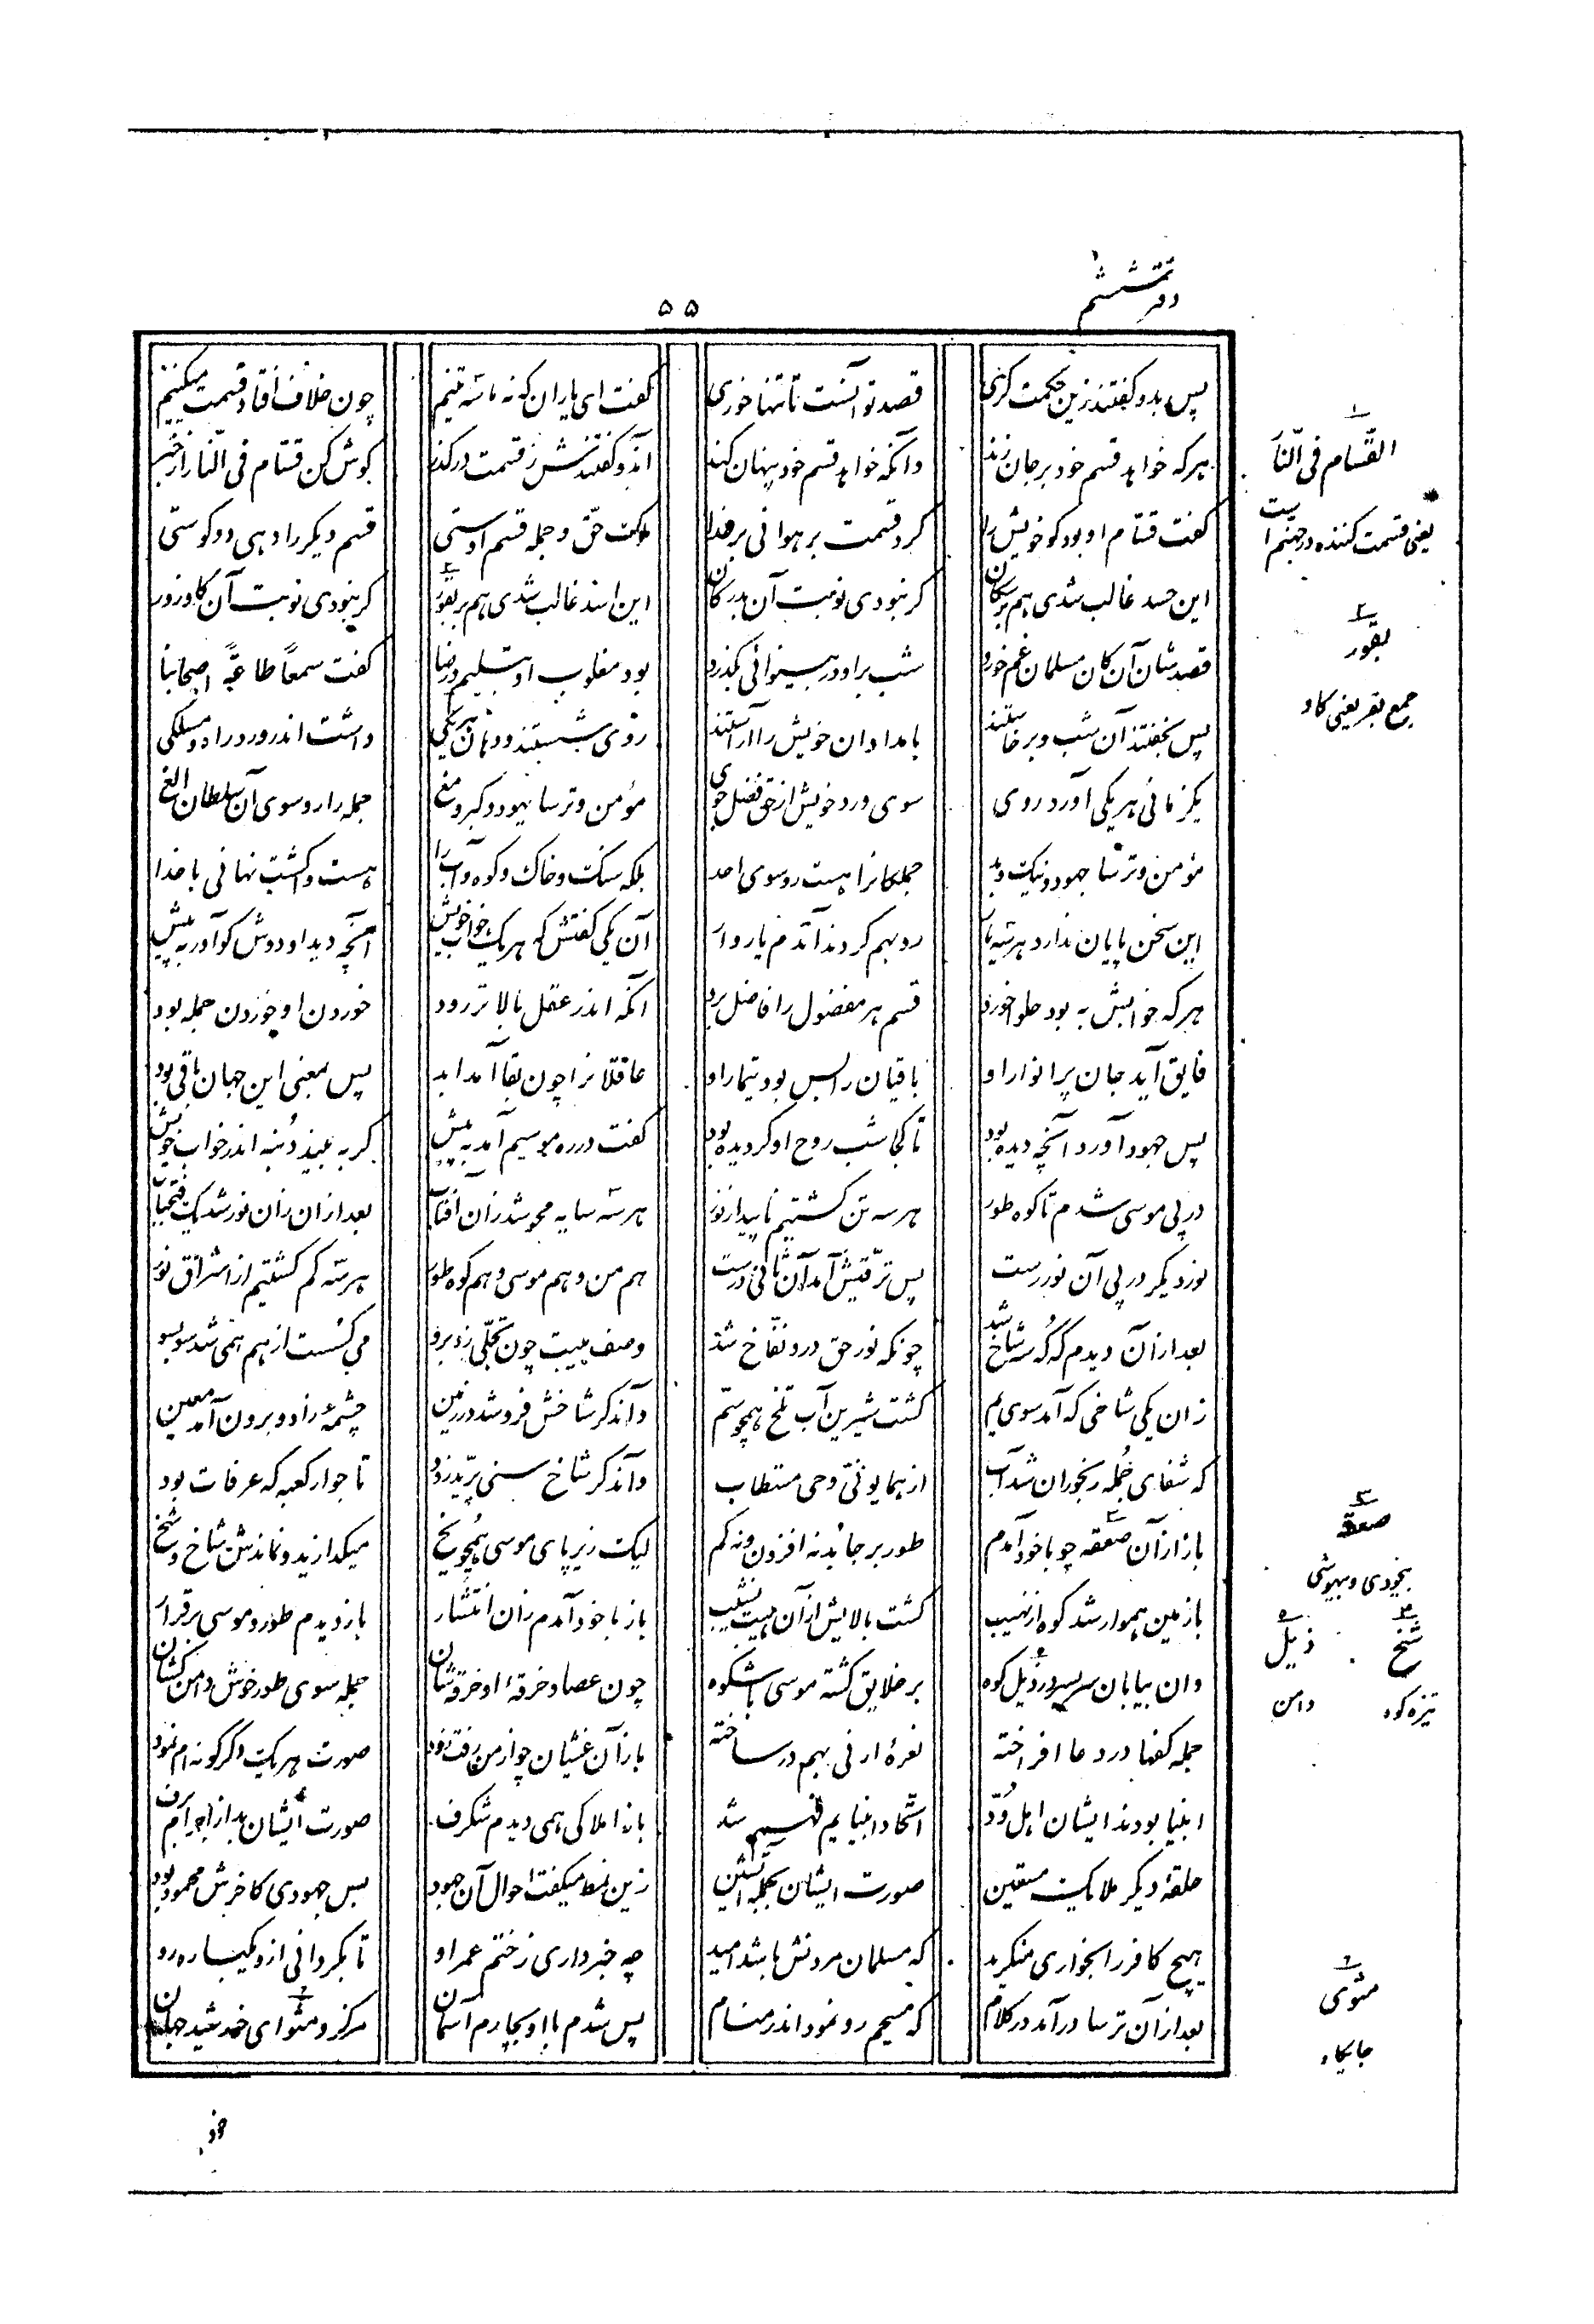 دفتر ششم
۵۵
پس بدو گفتند زین حکمت گری قصد تو آنست تا تنها خوری گفت ای یاران که نه ما سه تنیم چون خلاف افتاد قسمت میکنیم
هر که خواهد قسم خود بر جان زند وآنکه خواهد قسم خود پنهان کند آندو گفتندش ز قسمت درگذر گوش کن قسّام فی النّار از خبر
گفت قسّام او بود کو خویش را کرد قسمت بر هوا نی بر خدا ملکت حق و جمله قسم اوستی قسم دیگر را دهی دو گوستی
این اسد غالب شدی هم بر سگان گر نبودی نوبت آن بدرگان این اسد غالب شدی هم بر بقور گر نبودی نوبت آن گاو زور
قصدشان آن کان مسلمان غم خورد شب بر او در بینوائی بگذرد بود مغلوب او بتسلیم و رضا گفت سمعاً طاعةً اصحابنا
پس بخفتند آن شب و برخاستند بامدادان خویش را آراستند روی شستند و دهان هر یکی داشت اندر ورد راه و مسلکی
یکزمانی هر یکی آورد روی سوی ورد خویش از حق فضل جوی مؤمن و ترسا یهود و گبر و مغ جمله را رو سوی آن سلطان الغ
مؤمن و ترسا جهود و نیک و بد جملگانرا هست رو سوی احد بلکه سنگ و خاک و کوه و آب را هست واگشت نهانی با خدا
این سخن پایان ندارد هر سه یار رو بهم کردند آندم یاروار آن یکی گفتش که هر یک خواب خویش آنچه دید او دوش گو آور به پیش
هر که خوابش به بود حلوا خورد قسم هر مفضول را فاضل برد آنکه اندر عقل بالاتر رود خوردن او خوردن جمله بود
فایق آید جان پر انوار او باقیان را بس بود تیمار او عاقلانرا چون بقا آمد ابد پس بمعنی این جهان باقی بود
پس جهود آورد آنچه دیده بود تا کجا شب روح او گردیده بود گفت در ره موسیم آمد به پیش گربه بیند دنبه اندر خواب خویش
در پی موسی شدم تا کوه طور هر سه تن گشتیم ناپیدا ز نور هر سه سایه محو شد زان آفتاب بعد از آن زان نور شد یک فتحباب
نور دیگر در پی آن نور رست پس ترقّیش آمد آن ثانی درست هم من و هم موسی و هم کوه طور هر سه گم گشتیم از اشراق نور
بعد از آن دیدم که کُه سه شاخ شد چونکه نور حق درو نفّاخ شد وصف هیبت چون تجلّی زد برو می گسست از هم همی شد سو بسو
زان یکی شاخی که آمد سوی یم گشت شیرین آب تلخ همچو سم وآندگر شاخش فرو شد در زمین چشمه زاد و برون آمد معین
که شفای جمله رنجوران شد آب از همایونّی وحی مستطاب وآندگر شاخ سنی پرّید زود تا جوار کعبه که عرفات بود
باز از آن صعقه چو با خود آمدم طور بر جا بُد نه افزون و نه کم لیک زیر پای موسی همچو یخ میگدازید و نماندش شاخ و شخ
با زمین هموار شد کوه از نهیب گشت بالایش از آن هیبت نشیب باز با خود آمدم زان انتشار باز دیدم طور و موسی برقرار
وان بیابان سر بسر در ذیل کوه بر خلایق گشته موسی با شکوه چون عصا و خرقۀ او خرقه شان جمله سوی طور خوش دامن کشان
جمله کفها در دعا افراخته نعرۀ ارنی بهم در ساخته باز آن غشیان چو از من رفت زود صورت هر یک دگرگونه ام نمود
انبیا بودند ایشان اهل ودّ اتّحاد انبیایم فهم شد باز املاکی همی دیدم شگرف صورت ایشان بد از اجرام برف
حلقۀ دیگر ملایک مستعین صورت ایشان بجمله آتشین زین نمط میگفت احوال آن جهود بس جهودی کاخرش محمود بود
هیچ کافر را بخواری منگرید که مسلمان مردنش باشد امید چه خبر داری ز ختم عمر او تا بگردانی ازو یکباره رو
بعد از آن ترسا درآمد در کلام که مسیحم رو نمود اندر منام پس شدم با او بچارم آسمان مرکز و مثوای خورشید جهان
۱
القسّام فی النّار
یعنی قسمت کننده در جهنم است
۲
بقور
جمع بقر یعنی گاو
۳
صعقه
بیخودی و بیهوشی
۴ ۵
شخ ذیل
تیزه کوه دامن
۶
مثوی
جایگاه
خود